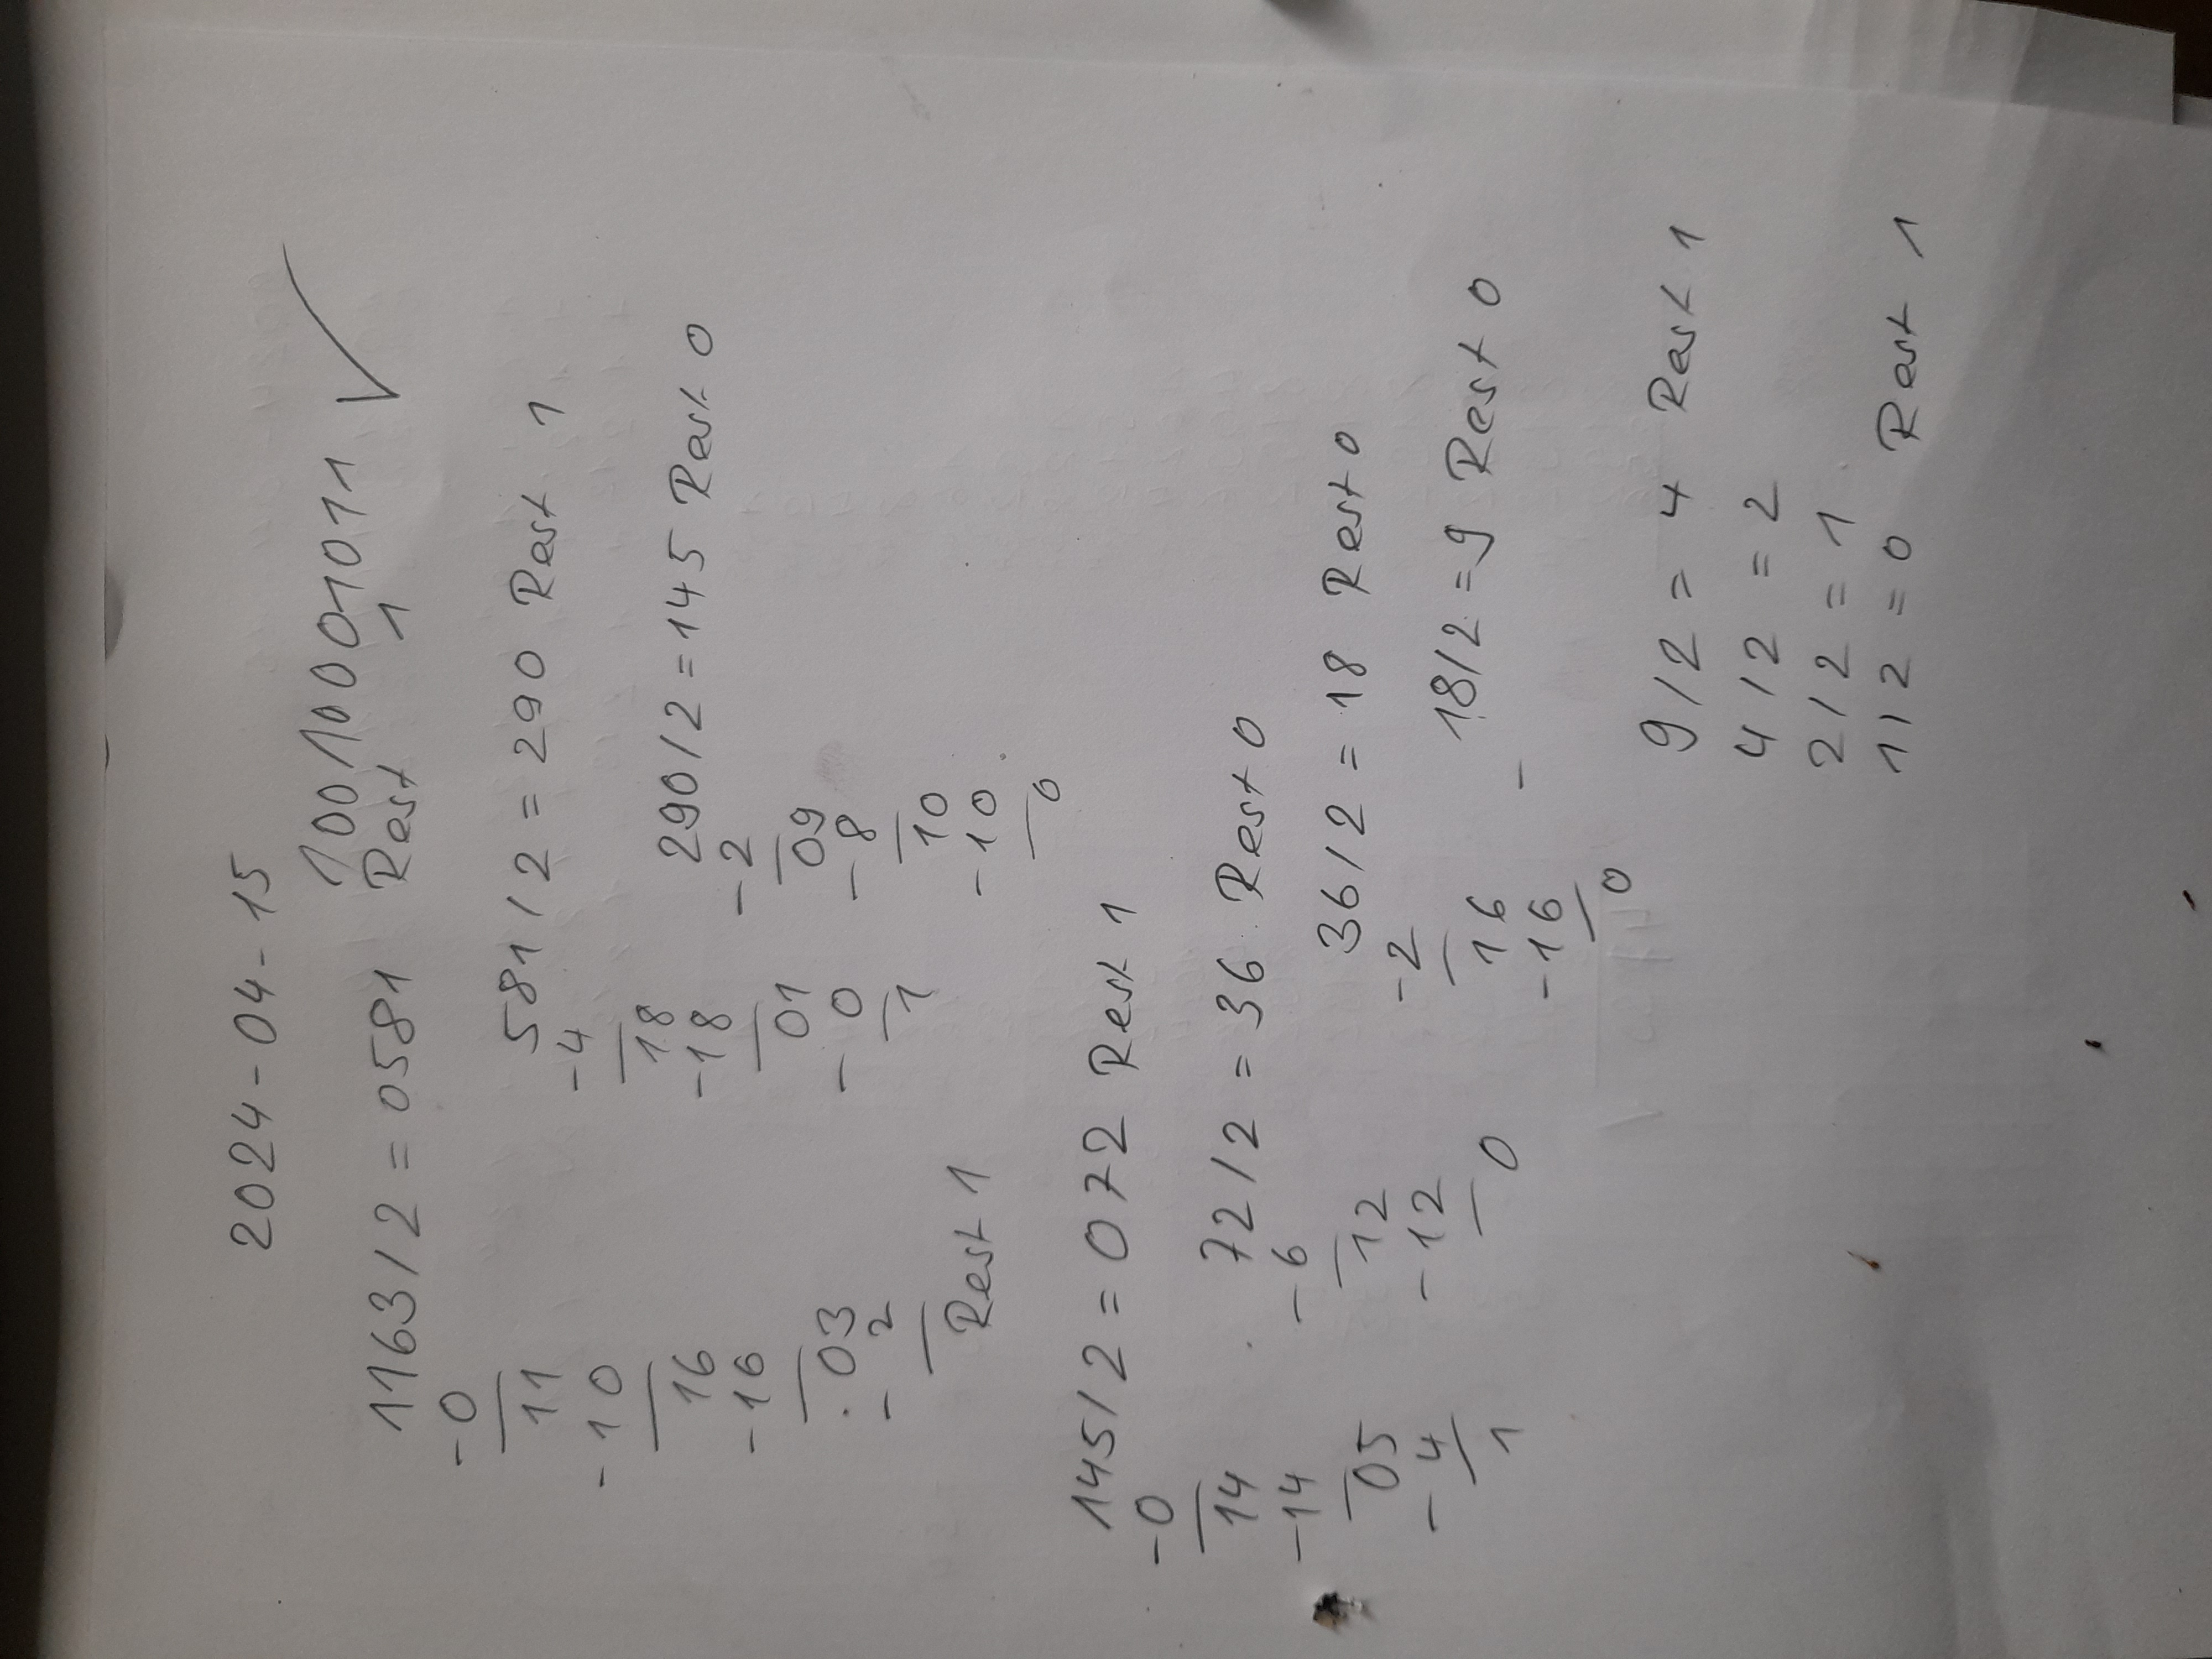 2024-04-15
10010001011 ✓
1163/2 = 0581 Rest 1
-0
11
-10
16
-16
03
- 2
Rest 1
581/2 = 290 Rest 1
-4
18
-18
01
- 0
1
290/2 = 145 Rest 0
-2
09
-8
10
-10
0
145/2 = 072 Rest 1
-0
14
-14
05
- 4
1
72/2 = 36 Rest 0
-6
12
-12
0
36/2 = 18 Rest 0
-2
16
-16
0
18/2 = 9 Rest 0
-
9/2 = 4 Rest 1
4/2 = 2
2/2 = 1
1/2 = 0 Rest 1